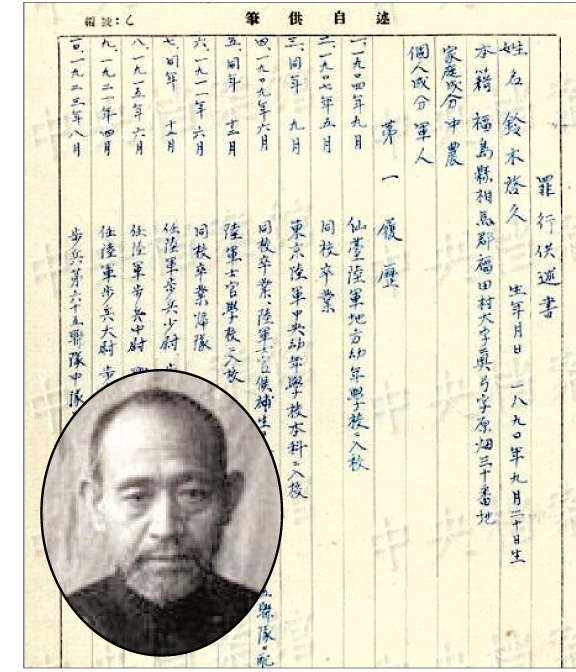 筆供自述
編號:乙
罪行供述書
姓名 鈴木啓久 生年月日 一八九〇年九月二十日生
本籍 福島縣相馬郡福田村大字眞弓字原畑三十番地
家庭成分 中農
個人成分 軍人
第一 履歷
一、一九〇四年九月 仙臺陸軍地方幼年學校ニ入校
二、一九〇七年五月 同校卒業
三、同年 九月 東京陸軍中央幼年學校本科ニ入校
四、一九〇九年六月 同校卒業、陸軍士官候補生 聯隊ニ配
五、同年 十二月 陸軍士官學校ニ入校
六、一九一一年六月 同校卒業歸隊
七、同年 十二月 任陸軍步兵少尉
八、一九一五年六月 任陸軍步兵中尉
九、一九二一年四月 任陸軍步兵大尉 步
一〇、一九二三年八月 步兵第六十五聯隊中隊